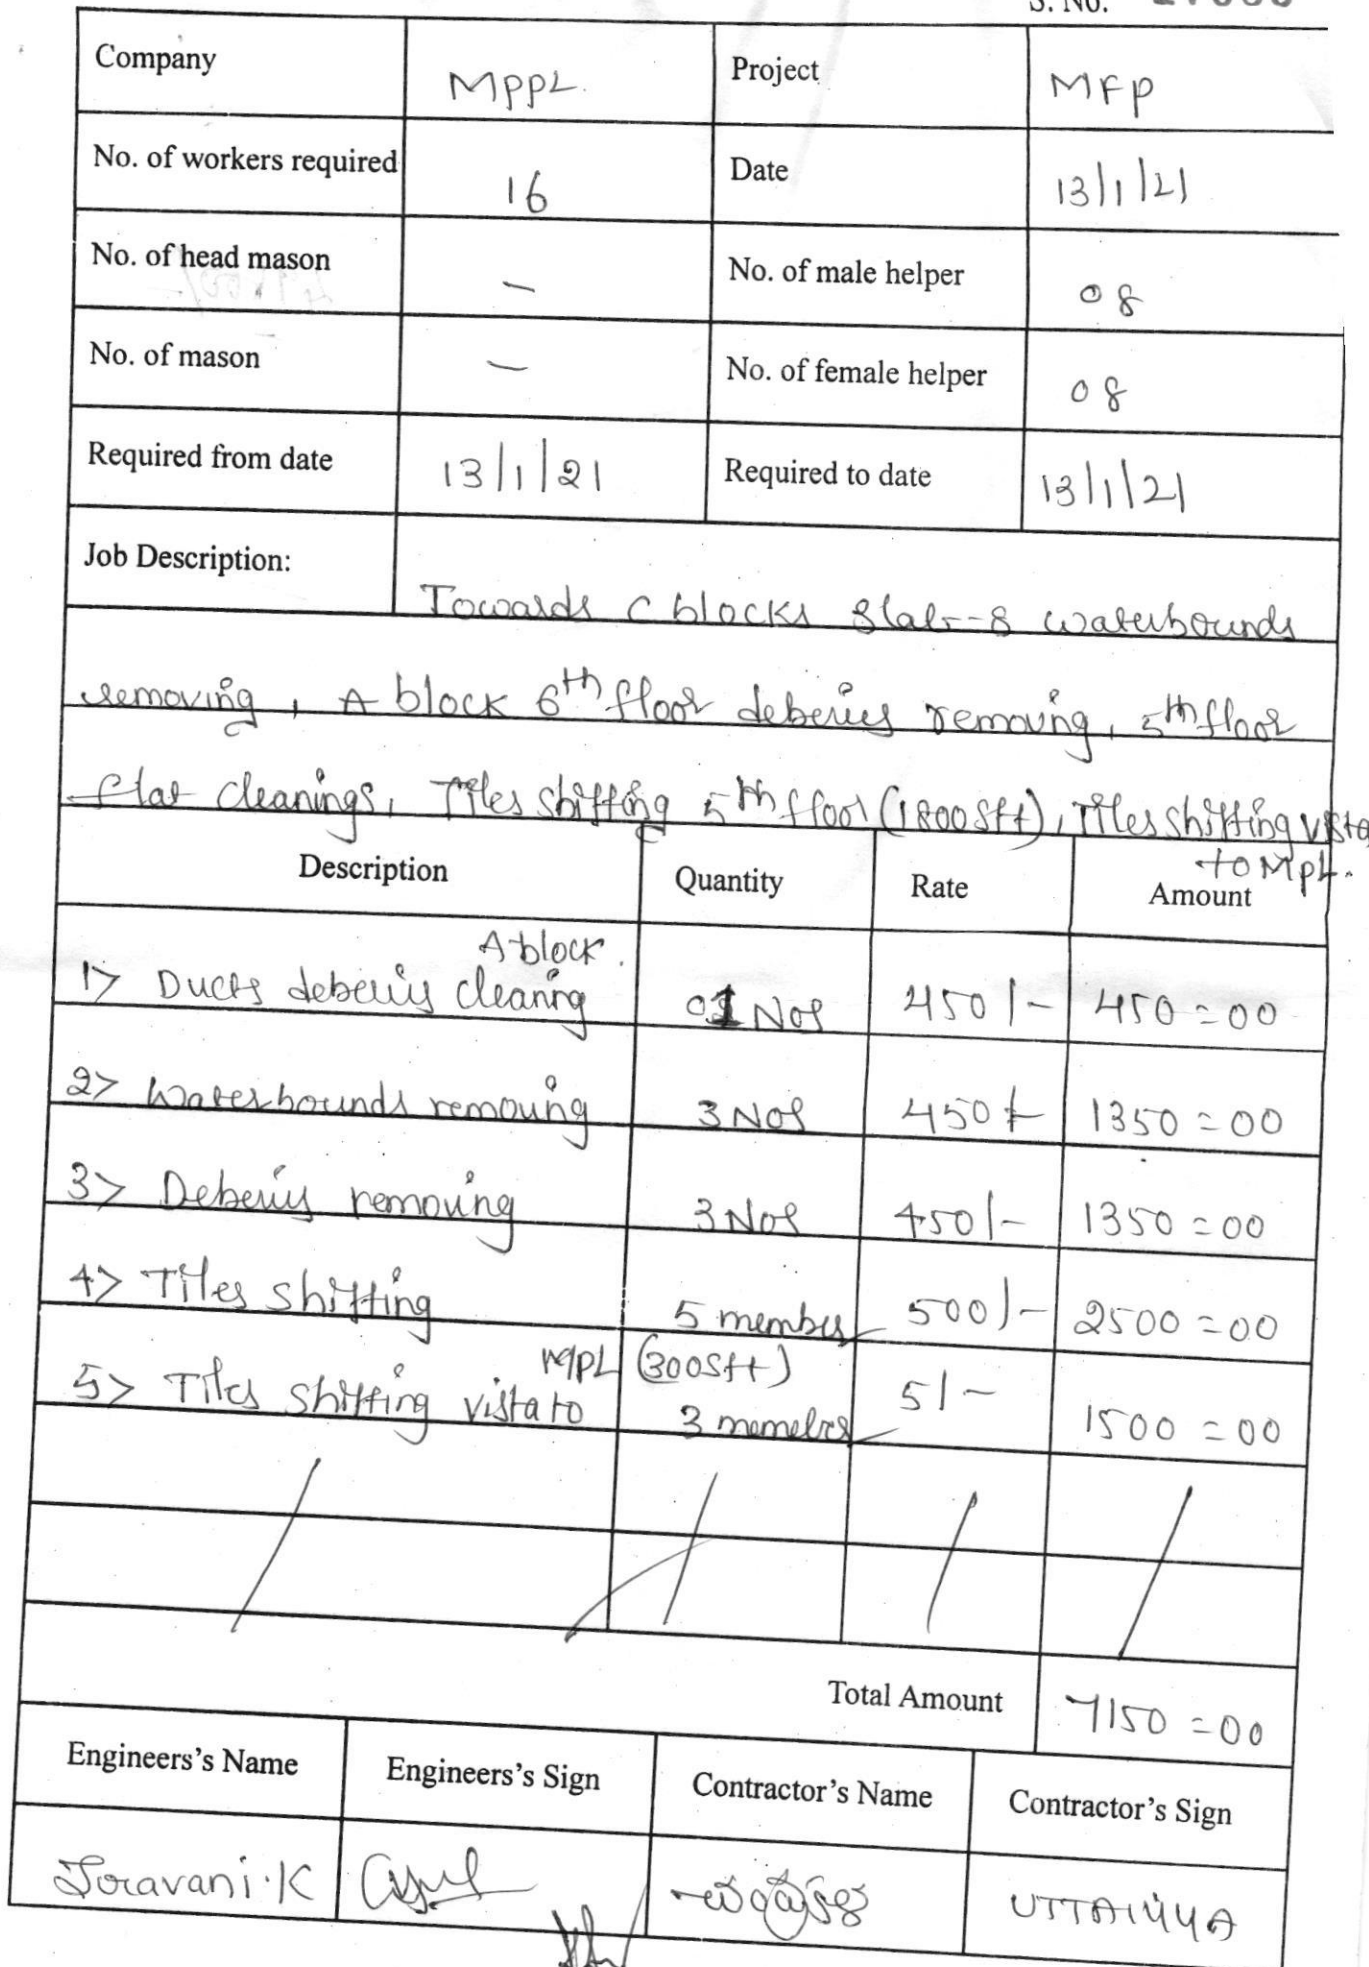 S. No.
Company MPPL. Project MFP
No. of workers required 16 Date 13/1/21
No. of head mason - No. of male helper 08
No. of mason - No. of female helper 08
Required from date 13/1/21 Required to date 13/1/21
Job Description: Towards C blocks Slab-8 waterbounds
removing, A block 6th floor deberies removing, 5th floor
flat cleanings, Tiles shifting 5th floor (1800Sft), Tiles shifting vista
to MPL.
Description Quantity Rate Amount
A-block.
1> Ducts deberiy cleaning 01 Nos 450/- 450=00
2> Waterbounds removing 3 Nos 450/- 1350=00
3> Deberiy removing 3 Nos 450/- 1350=00
4> Tiles shifting 5 membes 500/- 2500=00
MPL (300Sft)
5> Tiles shifting vista to 3 memebrs 5/- 1500=00
Total Amount 7150=00
Engineers's Name Engineers's Sign Contractor's Name Contractor's Sign
Sravani.K UTTAIYYA